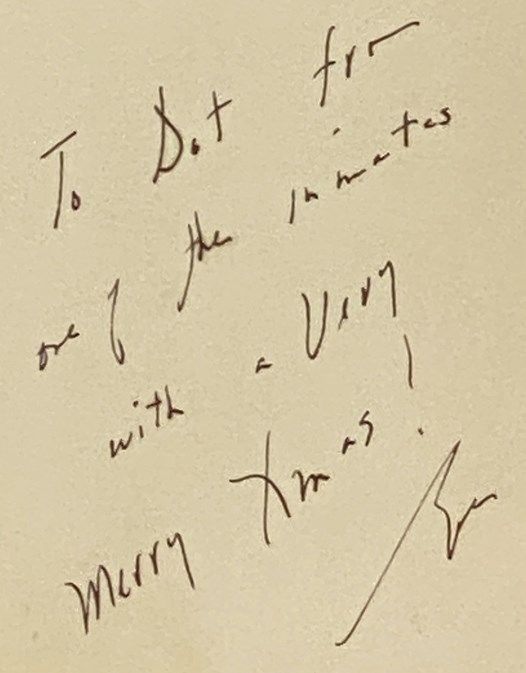 To Dot from
one of the inmates
with a Very
Merry Xmas!